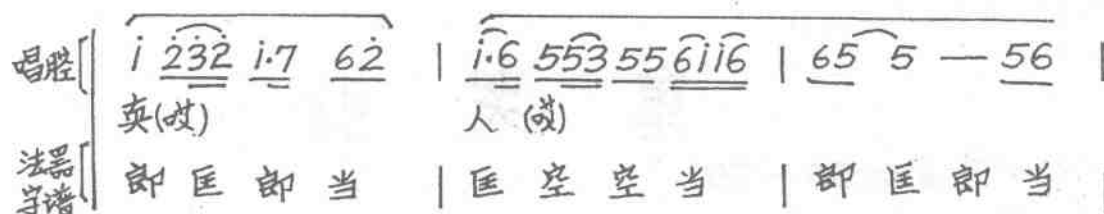 唱腔 i̇ 2̇3̇2̇ i̇·7 62̇ | i̇·6 553 55 6i̇i̇6 | 65 5 — 56 |
英(哎) 人 (哎)
法器字谱 郎 匡 郎 当 | 匡 空 空 当 | 郎 匡 郎 当 |